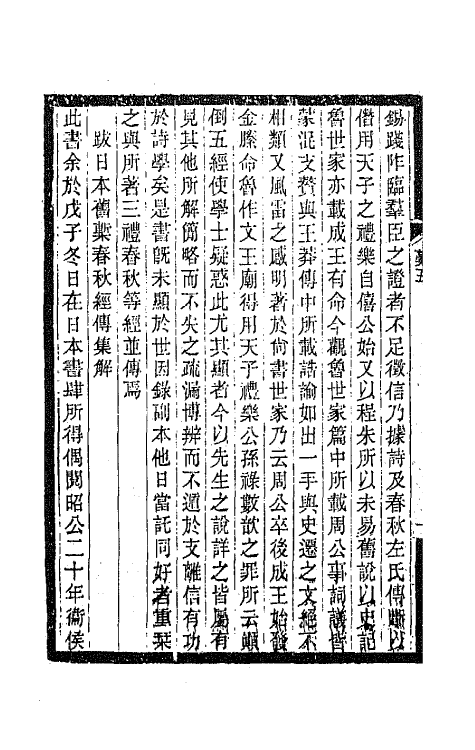 錫踐阼臨羣臣之證者不足徵信乃據詩及春秋左氏傳斷以
僭用天子之禮樂自僖公始又以程朱所以未易舊說以史記
魯世家亦載成王有命今觀魯世家篇中所載周公事詞議皆
蒙混支贅與王莽傳中所載誥諭如出一手與史遷之文絕不
相類又風雷之感明著於尙書世家乃云周公卒後成王始發
金縢命魯作文王廟得用天子禮樂公孫祿數歆之罪所云顚
倒五經使學士疑惑此尤其顯者今以先生之說詳之皆屬有
見其他所解簡略而不失之疏漏博辨而不遁於支離信有功
於詩學矣是書旣未顯於世因錄副本他日當託同好者重栞
之與所著三禮春秋等經並傳焉
跋日本舊槧春秋經傳集解
此書余於戊子冬日在日本書肆所得偶閱昭公二十年衞侯